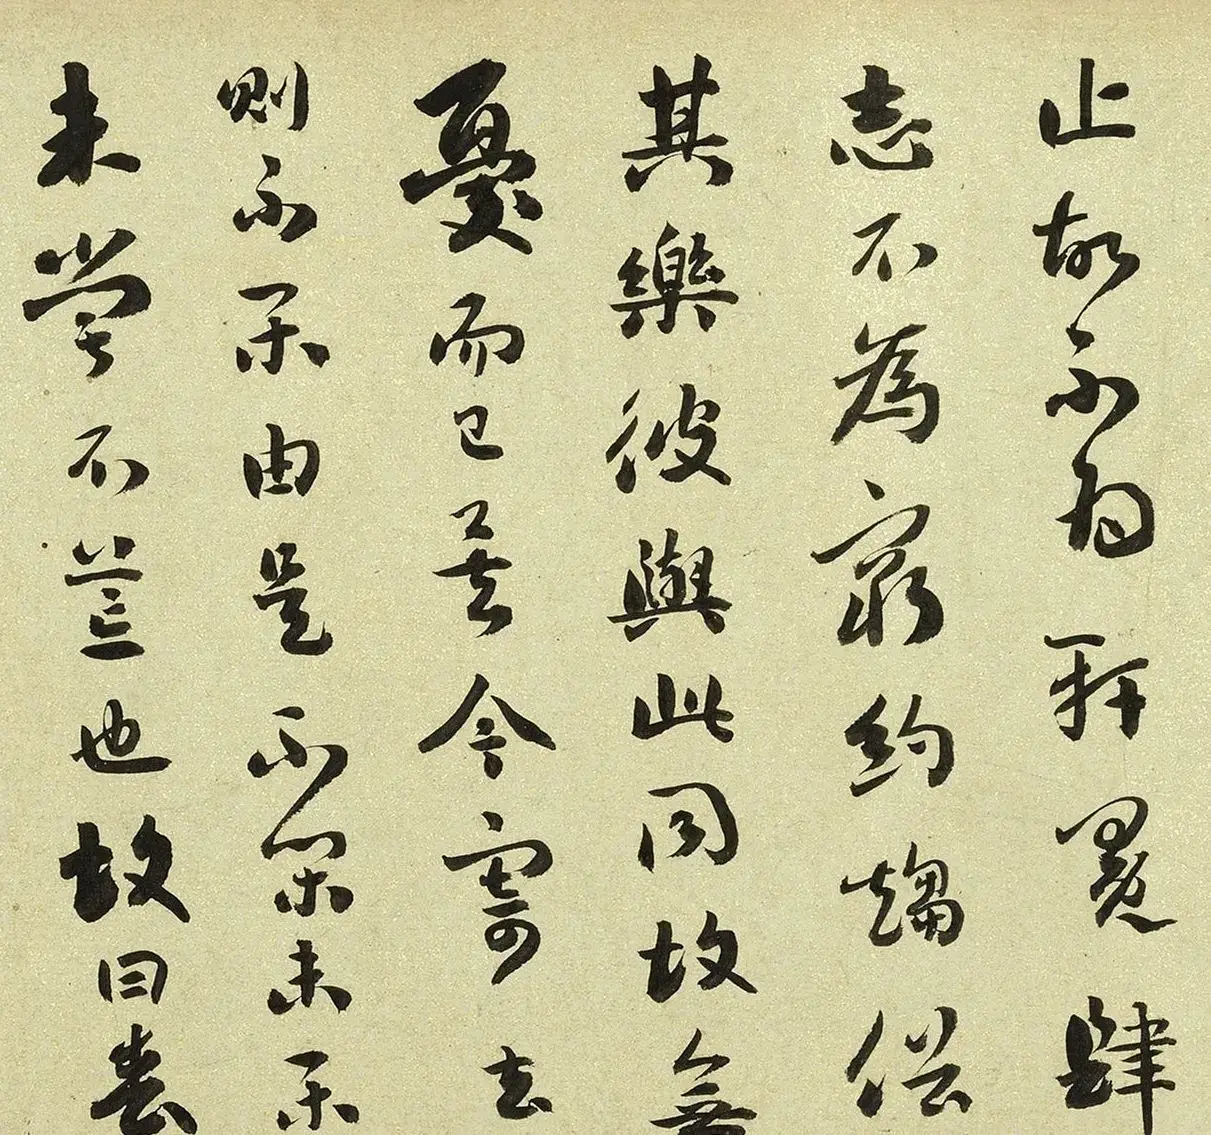 止故不為軒冕肆
志不為窮約趨俗
其樂彼與此同故無
憂而已矣今寄去
則不樂由是不樂未樂
未嘗不荒也故曰喪